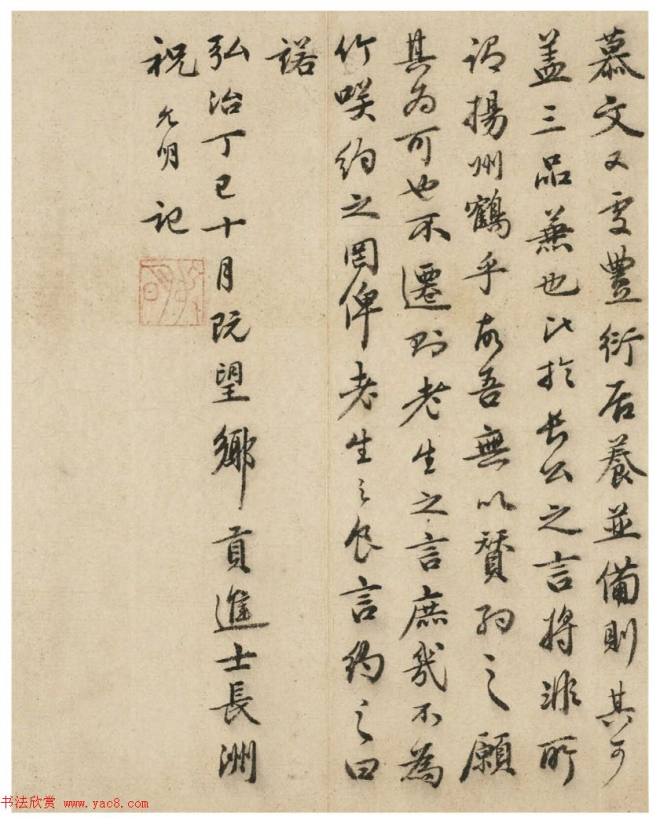 慕文又受豐衍居養並備則其可
蓋三品兼也比於長公之言將非所
謂揚州鶴乎哉吾無以贊約之願
其為可也不遷則老生之言庶幾不為
竹咲約之罔俾老生之食言約之曰
諾
弘治丁巳十月既望鄉貢進士長洲
祝允明記
书法欣赏 www.yac8.com